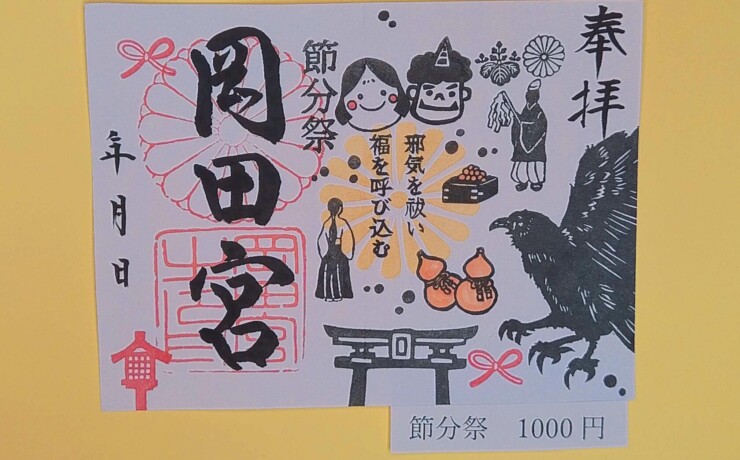 奉拝
節分祭
邪気を祓い
福を呼び込む
岡田宮
年月日
節分祭 1000円